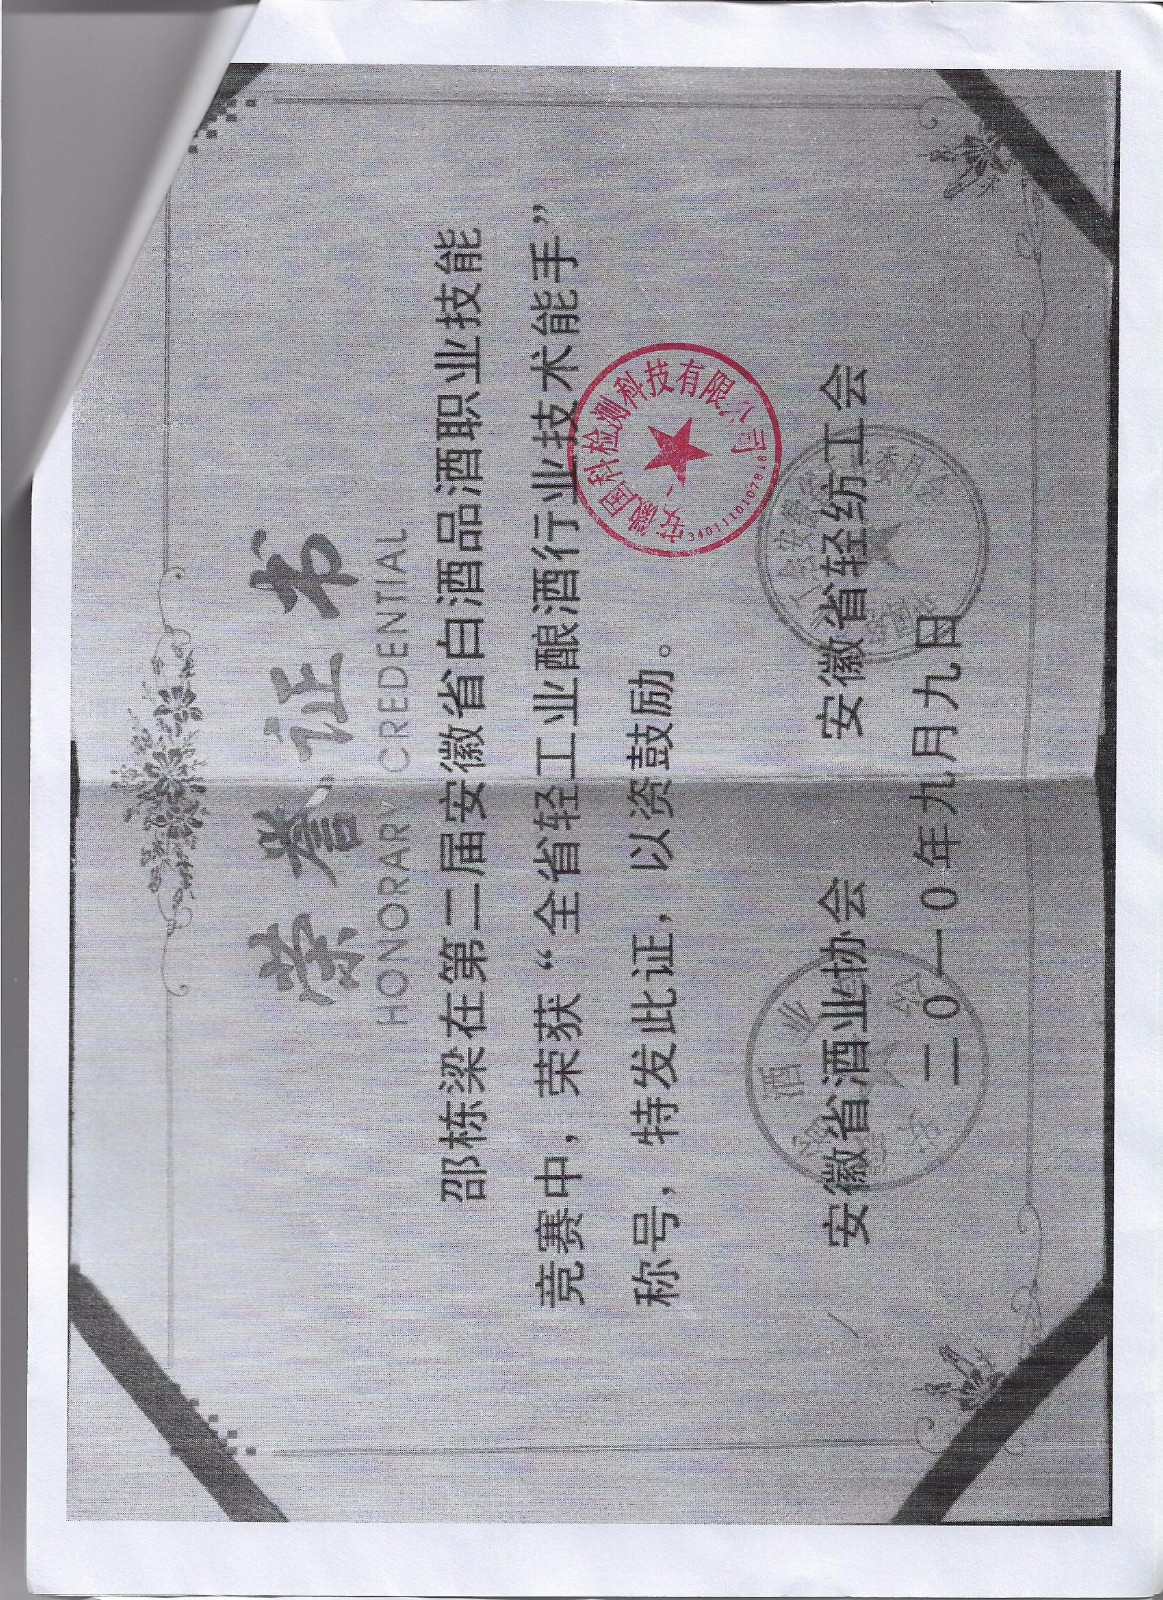 荣誉证书
HONORARY CREDENTIAL
邵栋梁在第二届安徽省白酒品酒职业技能
竞赛中，荣获“全省轻工业酿酒行业技术能手”
称号，特发此证，以资鼓励。
安徽国科检测科技有限公司
3401110107818
安徽省酒业协会 安徽省轻纺工会
二0一0年九月九日